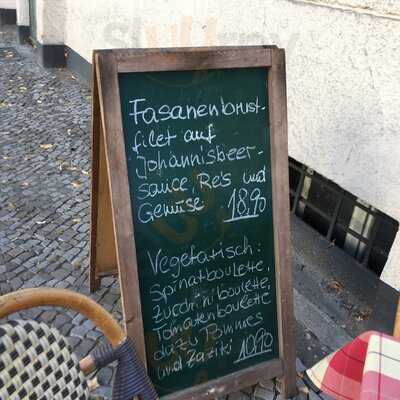 Fasanenbrust-
filet auf
Johannisbeer-
sauce, Reis und
Gemüse 18,90
Vegetarisch:
Spinatboulette,
Zucchiniboulette,
Tomatenboulette
dazu Pommes
und Zaziki 10,90